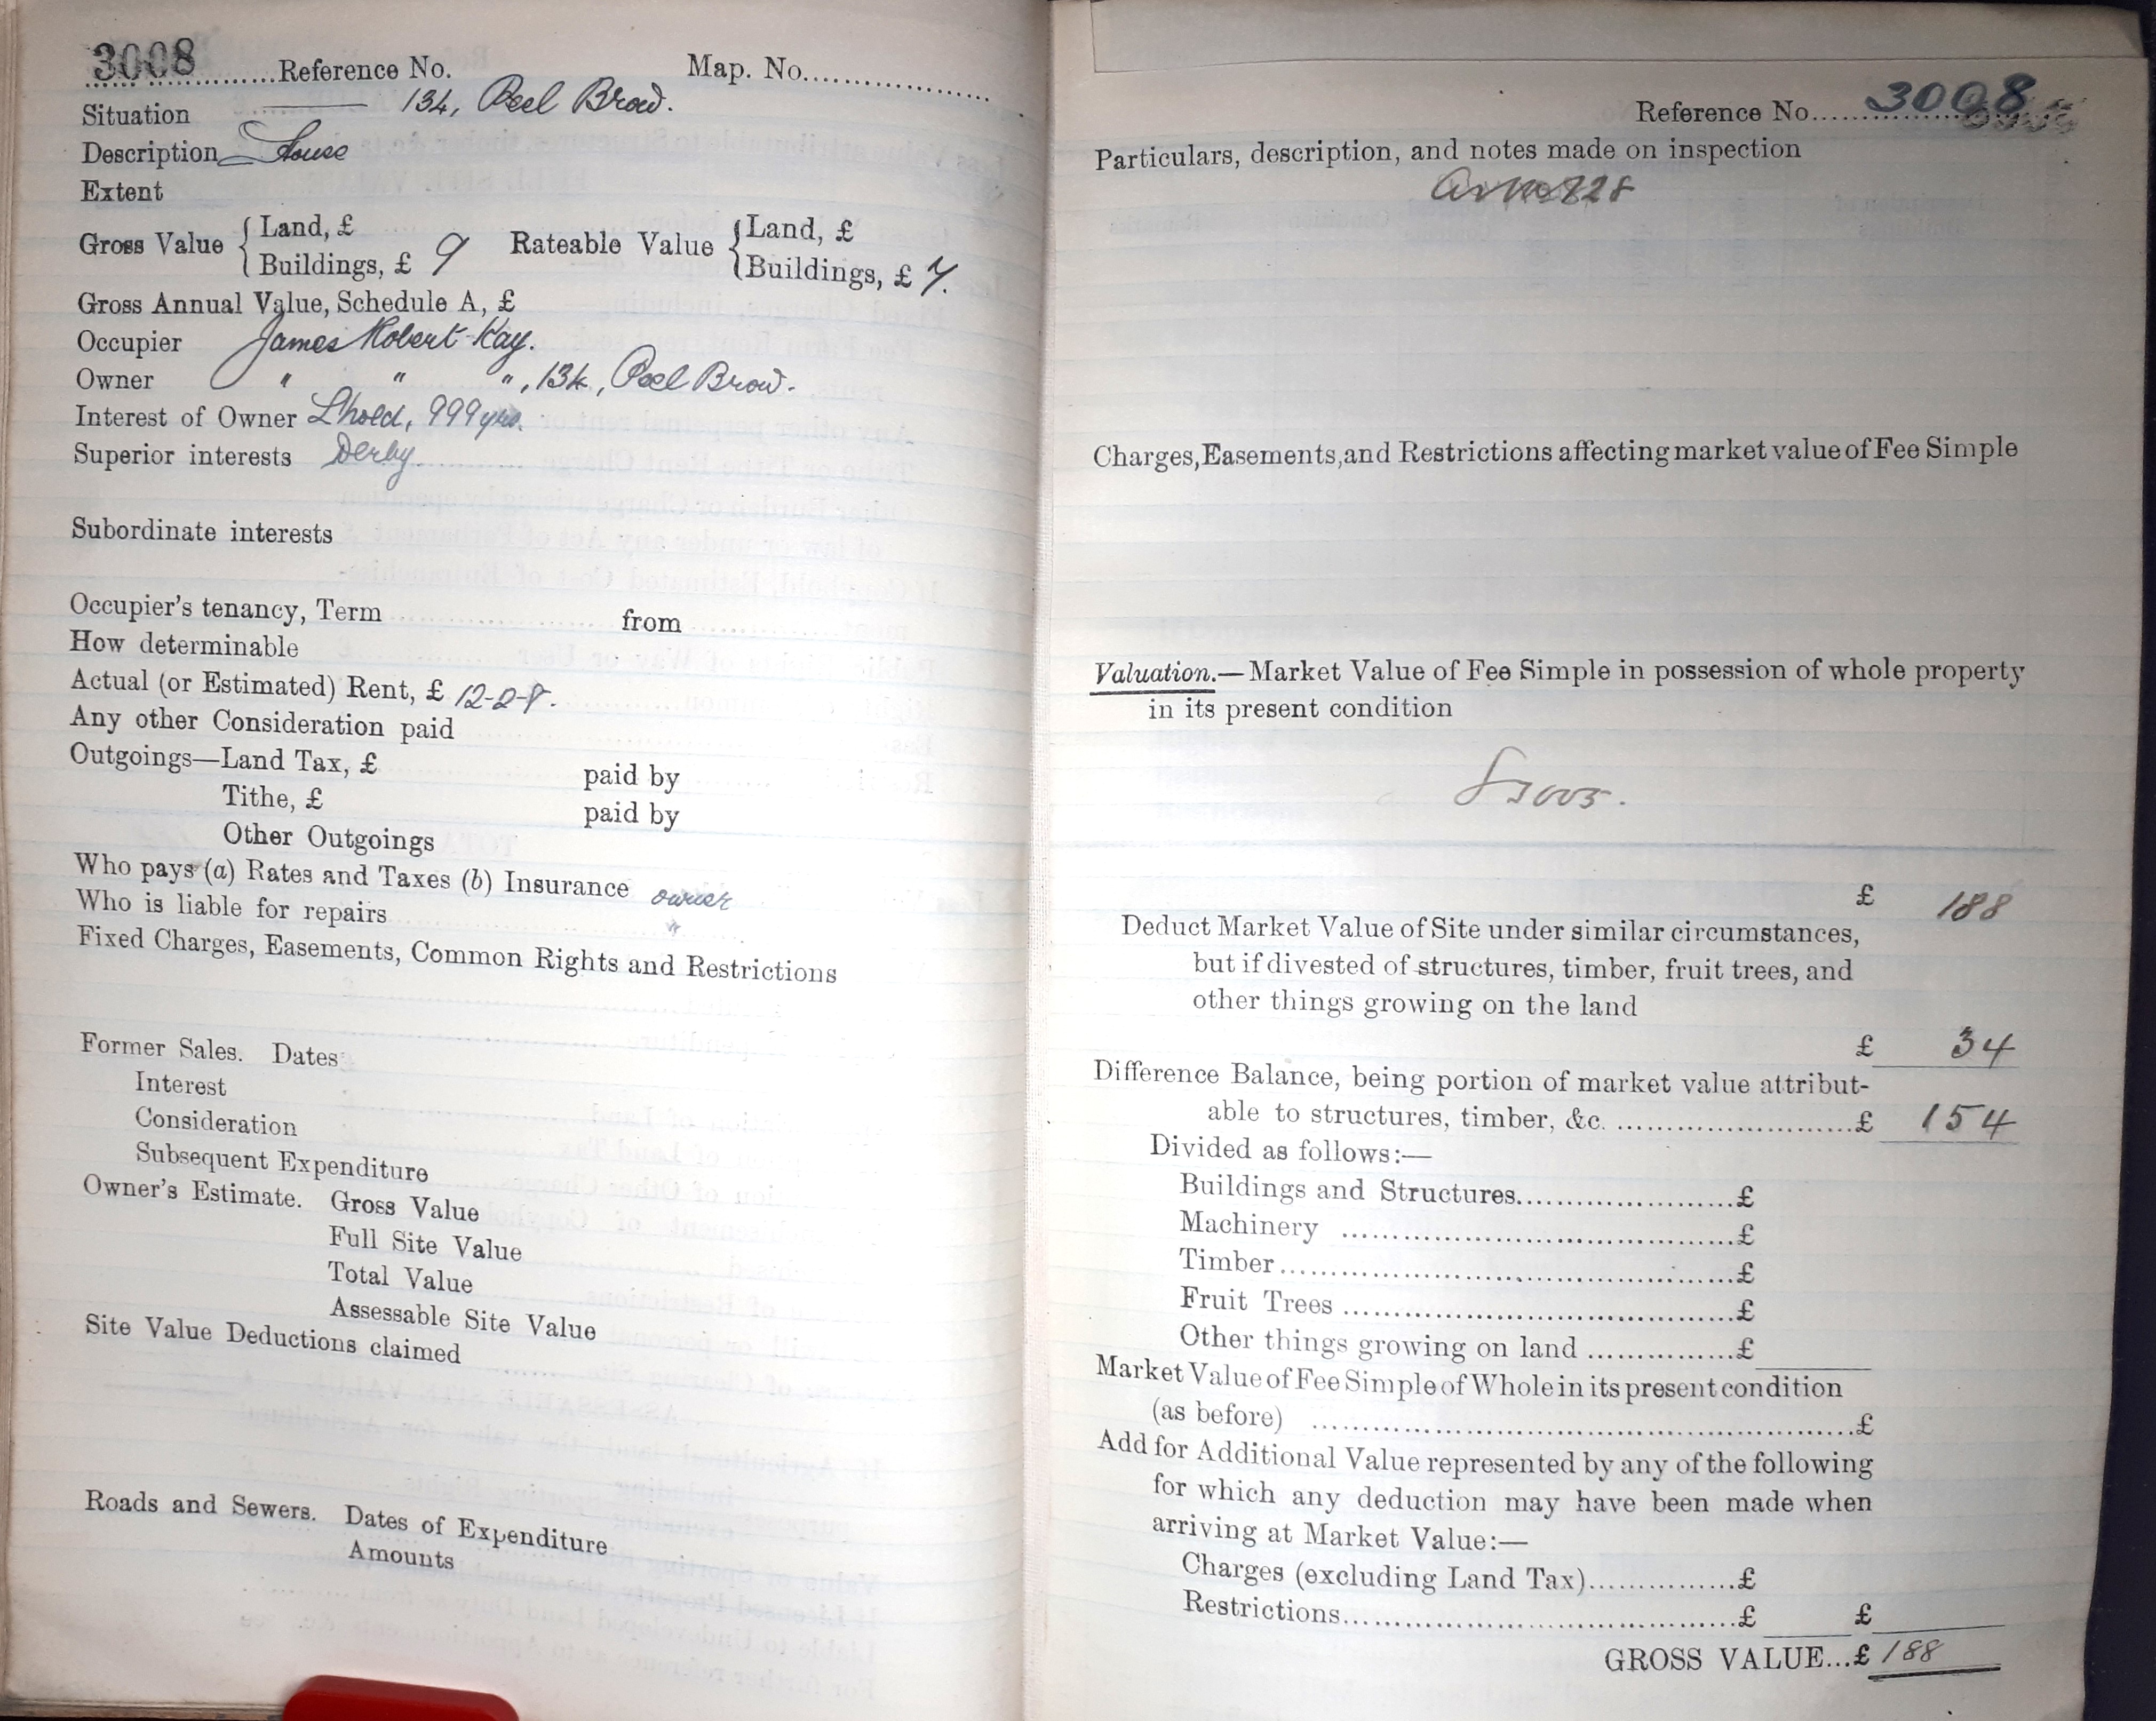 3008 Reference No. Map. No.
Situation 134, Peel Brow.
Description House
Extent
Gross Value { Land, £
Buildings, £ 9
Rateable Value { Land, £
Buildings, £ 7.
Gross Annual Value, Schedule A, £
Occupier James Robert Kay.
Owner " " ", 134, Peel Brow.
Interest of Owner Lhold, 999 yrs.
Superior interests Derby
Subordinate interests
Occupier's tenancy, Term from
How determinable
Actual (or Estimated) Rent, £ 12-2-8.
Any other Consideration paid
Outgoings—Land Tax, £ paid by
Tithe, £ paid by
Other Outgoings
Who pays (a) Rates and Taxes (b) Insurance owner
Who is liable for repairs "
Fixed Charges, Easements, Common Rights and Restrictions
Former Sales. Dates
Interest
Consideration
Subsequent Expenditure
Owner's Estimate. Gross Value
Full Site Value
Total Value
Assessable Site Value
Site Value Deductions claimed
Roads and Sewers. Dates of Expenditure
Amounts
Reference No. 3008
Particulars, description, and notes made on inspection
Charges, Easements, and Restrictions affecting market value of Fee Simple
Valuation.—Market Value of Fee Simple in possession of whole property
in its present condition
£ 188
Deduct Market Value of Site under similar circumstances,
but if divested of structures, timber, fruit trees, and
other things growing on the land
£ 34
Difference Balance, being portion of market value attribut-
able to structures, timber, &c. £ 154
Divided as follows:—
Buildings and Structures £
Machinery £
Timber £
Fruit Trees £
Other things growing on land £
Market Value of Fee Simple of Whole in its present condition
(as before) £
Add for Additional Value represented by any of the following
for which any deduction may have been made when
arriving at Market Value:—
Charges (excluding Land Tax) £
Restrictions £ £
GROSS VALUE...£ 188